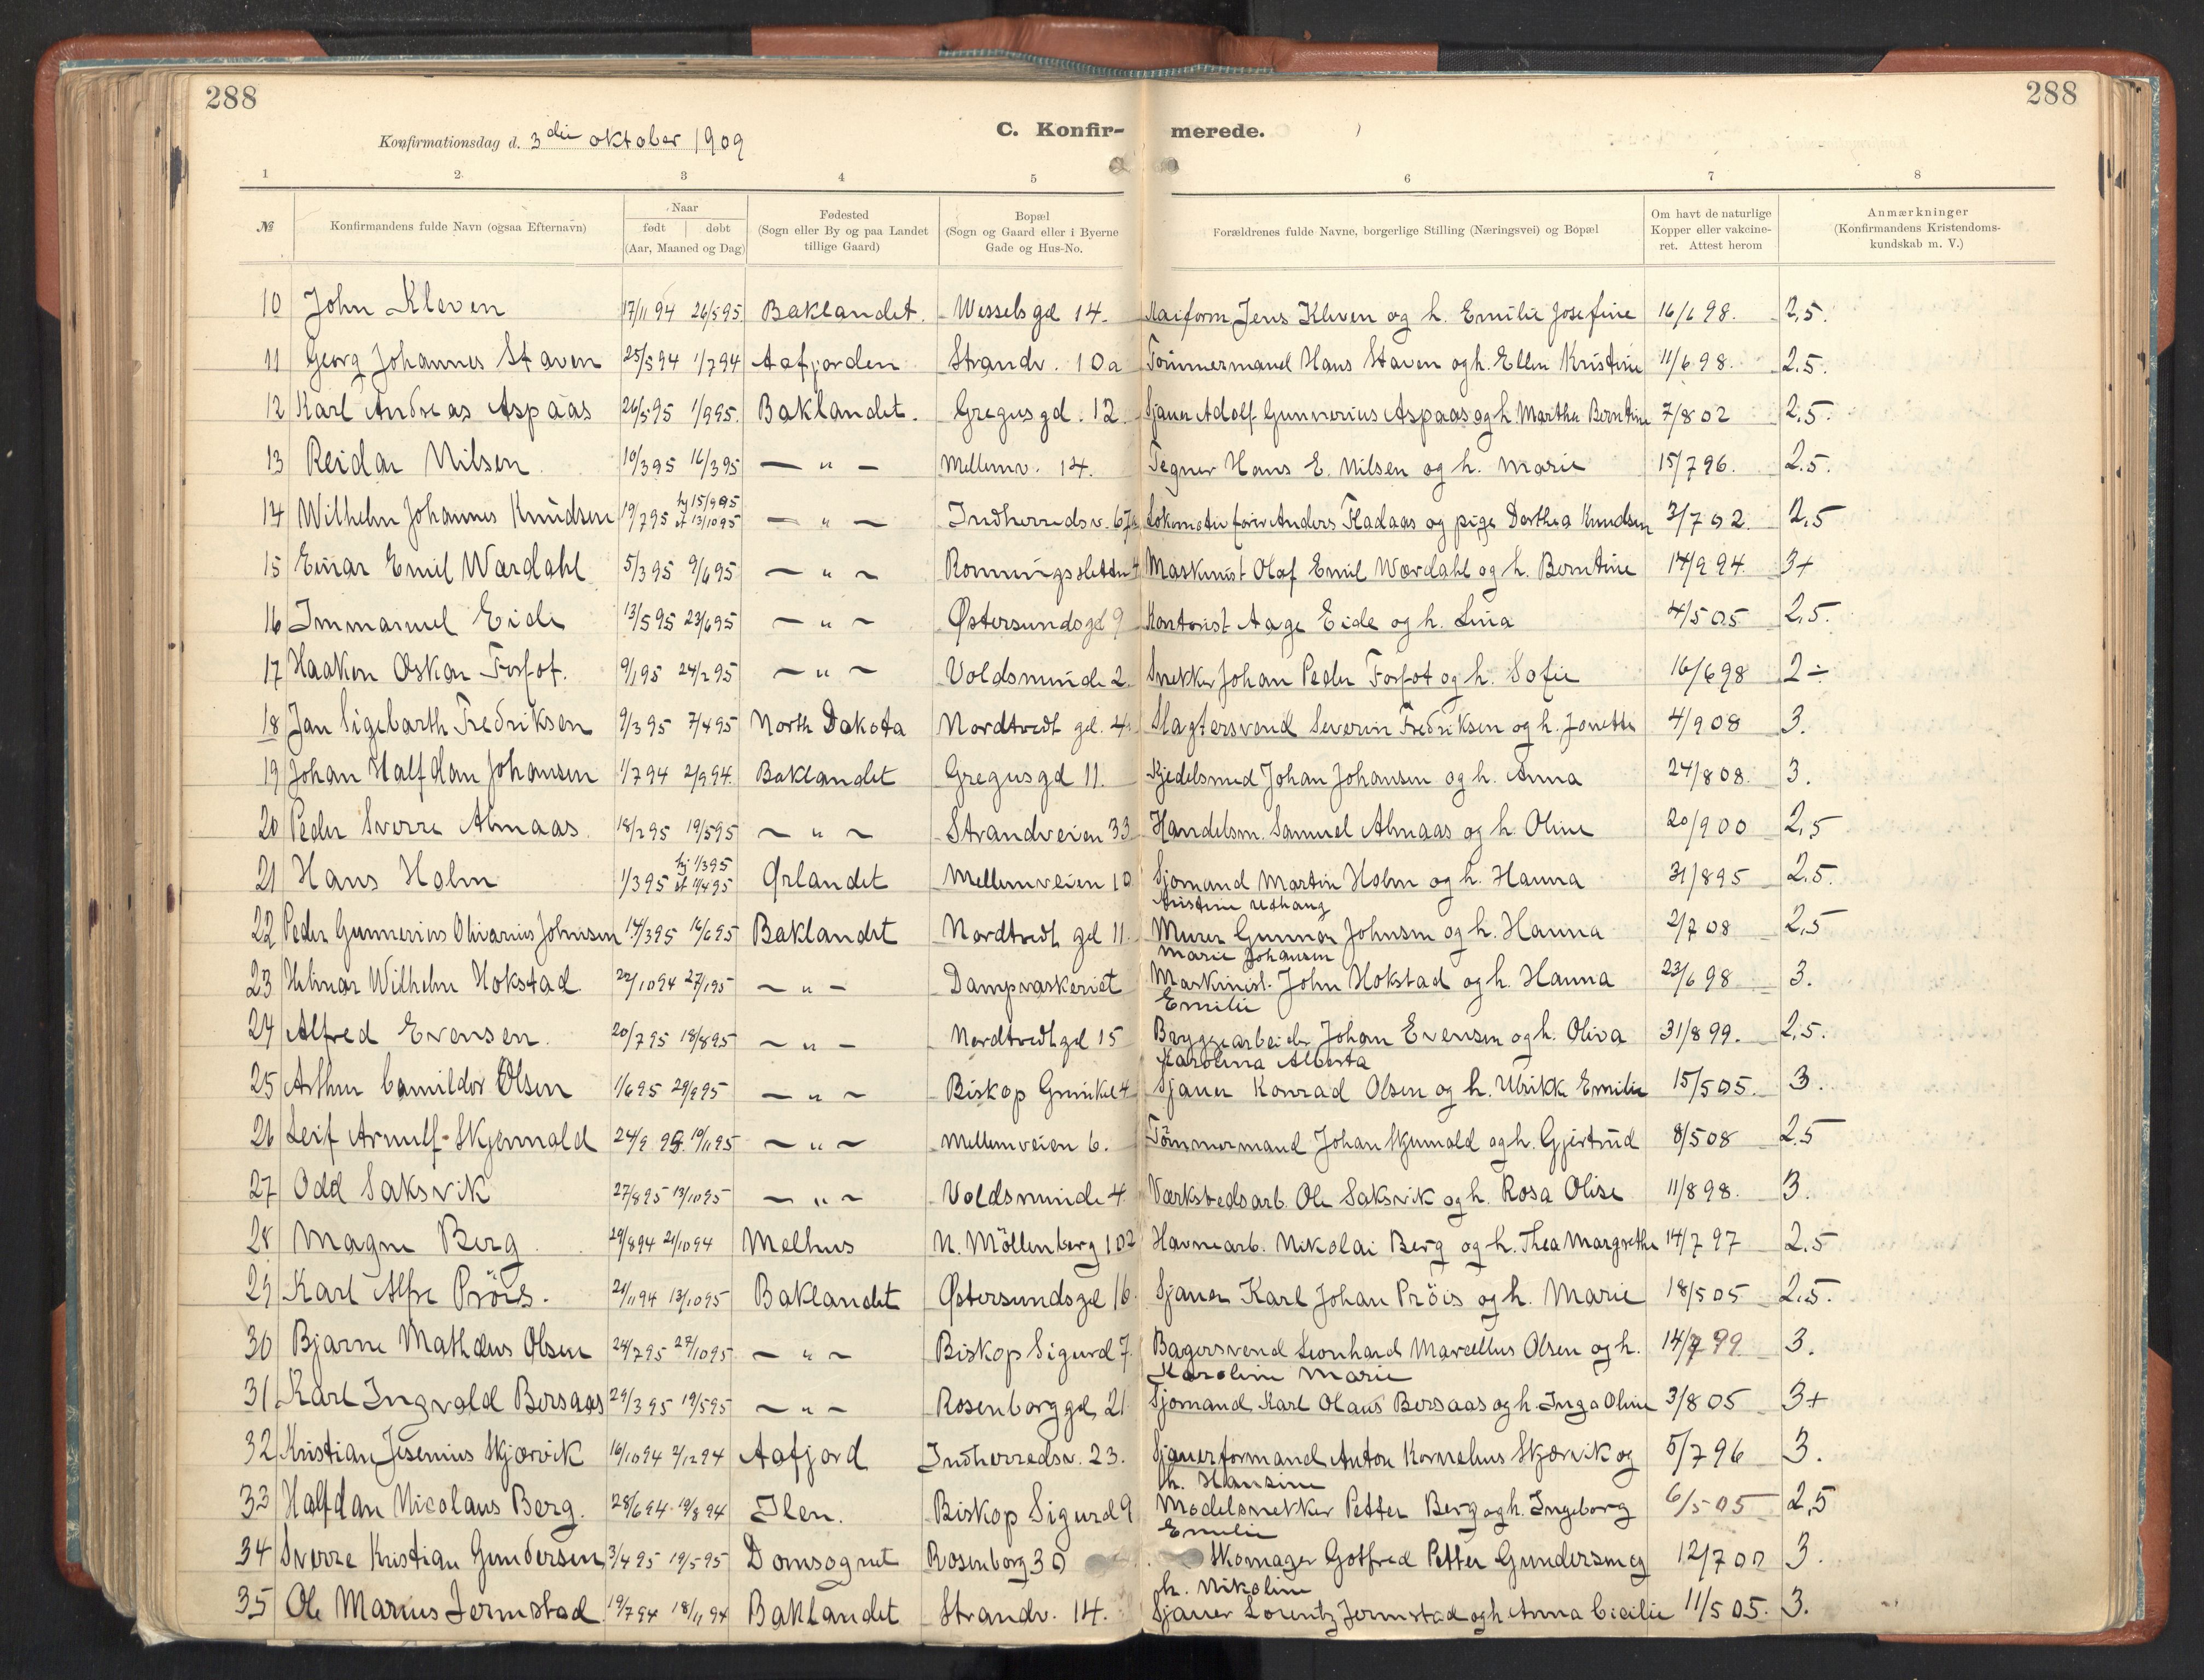 288
288
Konfirmationsdag d. 3die oktober 1909
C. Konfir-
merede.
1 2. 3 4 5 6 7 8
№ Konfirmandens fulde Navn (ogsaa Efternavn) Naar født døbt (Aar, Maaned og Dag) Fødested (Sogn eller By og paa Landet tillige Gaard) Bopæl (Sogn og Gaard eller i Byerne Gade og Hus-No. Forældrenes fulde Navne, borgerlige Stilling (Næringsvei) og Bopæl Om havt de naturlige Kopper eller vakcineret. Attest herom Anmærkninger (Konfirmandens Kristendomskundskab m. V.)
10 John Kleven 17/11 94 26/5 95. Baklandet. Wesselsgd 14. Kaiform. Jens Kleven og h. Emilie Josefine 16/6 98. 2,5.
11 Georg Johannes Staven 25/5 94 1/7 94 Aafjorden Strandv. 10a Tömmermand Hans Staven og h. Ellen Kristine 11/6 98. 2,5.
12 Karl Andreas Aspaas 26/5 95 1/9 95. Baklandet. Gregusgd. 12. Sjauer Adolf Gunnerius Aspaas og h. Martha Berntine 7/8 02 2,5.
13 Reidar Nilsen. 10/3 95 16/3 95 — " — Mellemv. 14. Tegner Hans E. Nilsen og h. Marie 15/7 96. 2.5.
14 Wilhelm Johannes Knudsen 19/7 95 hj 15/9 95 st 13/10 95 — " — Indherredsv. 67a Lokomotivfører Anders Fladaas og pige Dorthea Knudsen 3/7 02. 2,5
15 Einar Emil Wærdahl 5/3 95 9/6 95 — " — Ronningsletten 4 Maskinist Olaf Emil Wærdahl og h. Berntine 14/9 94. 3+
16 Immanuel Eide 13/5 95 23/6 95 — " — Østersundsgd 9 Kontorist Aage Eide og h. Lina 4/5 05 2,5.
17 Haakon Oskar Forfot. 9/1 95 24/2 95 — " — Voldsminde 2. Snekker Johan Peder Forfot og h. Sofie 16/6 98 2÷
18 Jan Sigebarth Fredriksen 9/3 95 7/4 95 North Dakota Nordtvedt gd. 4. Slagtersvend Severin Fredriksen og h. Jonette 4/9 08 3.
19 Johan Halfdan Johansen 1/7 94 2/9 94. Baklandet Gregusgd 11. Kjedelsmed Johan Johansen og h. Anna 24/8 08. 3.
20 Peder Sverre Almaas. 18/2 95 19/5 95 — " — Strandveien 33 Handelsm. Samuel Almaas og h. Oline 20/9 00 2,5
21 Hans Holm 1/3 95 hj 1/3 95 st 11/4 95 Ørlandet Mellemveien 10 Sjømand Martin Holm og h. Hanna 31/8 95 2.5.
Kristine Udhaug
22 Peder Gunnerius Olivarius Johnsen 14/3 95 16/6 95 Baklandet Nordtvedt gd 11. Murer Gunnar Johnsen og h. Hanna 2/7 08 2,5
Marie Johansen
23 Hilmar Wilhelm Hokstad. 22/10 94 27/1 95 — " — Dampvaskeriet Maskinist. John Hokstad og h. Hanna 23/6 98 3.
Emilie
24 Alfred Evensen. 20/7 95 18/8 95 — " — Nordtvedt gd 15 Bryggearbeider Johan Evensen og h. Oliva 31/8 99. 2,5.
Karolina Alberta
25 Arthur Camildor Olsen 1/6 95 29/9 95 — " — Biskop Grimkel 4 Sjauer Konrad Olsen og h. Ulrikk Emilie 15/5 05. 3.
26 Leif Arnulf-Skjermald 24/9 95. 10/11 95 — " — Mellemveien 6. Tömmermand Johan Skjermald og h. Gjertrud 8/5 08 2.5
27 Odd Saksvik 27/8 95 13/10 95 — " — Voldsminde 4 Værkstedsarb. Ole Saksvik og h. Rosa Olise 11/8 98. 3.
28 Magne Berg. 29/8 94 21/10 94 Melhus N. Möllenberg 102 Havnearb. Nikolai Berg og h. Thea Margrethe 14/7 97 2.5
29 Karl Alfr Pröis. 29/11 94 13/10 95 Baklandet Østersundsgd 16. Sjauer Karl Johan Pröis og h. Marie 18/5 05 2.5.
30 Bjarne Mathæus Olsen 24/7 95 27/10 95. — " — Biskop Sigurd 7. Bagersvend Leonhard Marcellus Olsen og h. 14/7 99. 3.
Karoline Marie
31 Karl Ingvald Bersaas 29/3 95 19/5 95 — " — Rosenborg gd, 21 Sjømand Karl Olaus Bersaas og h. Inga Oline 3/8 05 3+
32 Kristian Jesenius Skjærvik 16/10 94 2/12 94 Aafjord Indherredsv. 23. Sjauerformand Anton Kornelius Skjærvik og 5/7 96 3.
h. Hansine
33 Halfdan Nicolaus Berg. 28/6 94. 19/8 94 Ilen. Biskop Sigurd 9 Modelsnekker Petter Berg og h. Ingeborg 6/5 05 2,5
Emelie
34 Sverre Kristian Gundersen 3/4 95 19/5 95 Domsognet Rosenborg 30 Skomager Gotfred Petter Gundersen og 12/7 00 3.
h. Nikoline
35 Ole Marius Jermstad. 19/7 94 18/11 94 Baklandet Strandv. 14. Sjauer Lorentz Jermstad og h Anna Cicilie 11/5 05. 3.